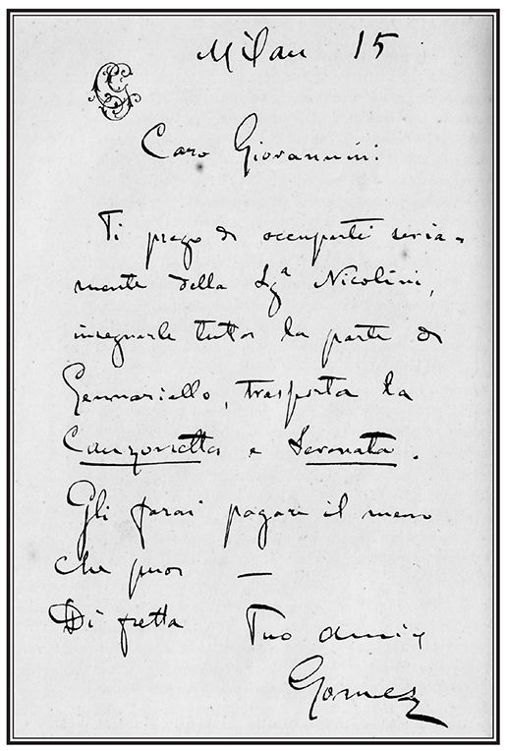 Milan 15
G
Caro Giovannini
Ti prego di occuparti seria-
mente della Sgª Nicolini,
insegnarle tutta la parte di
Gennariello, trasporta la
Canzonetta e Serenata.
Gli farai pagare il meno
che puoi —
Di fretta Tuo amico
Gomez